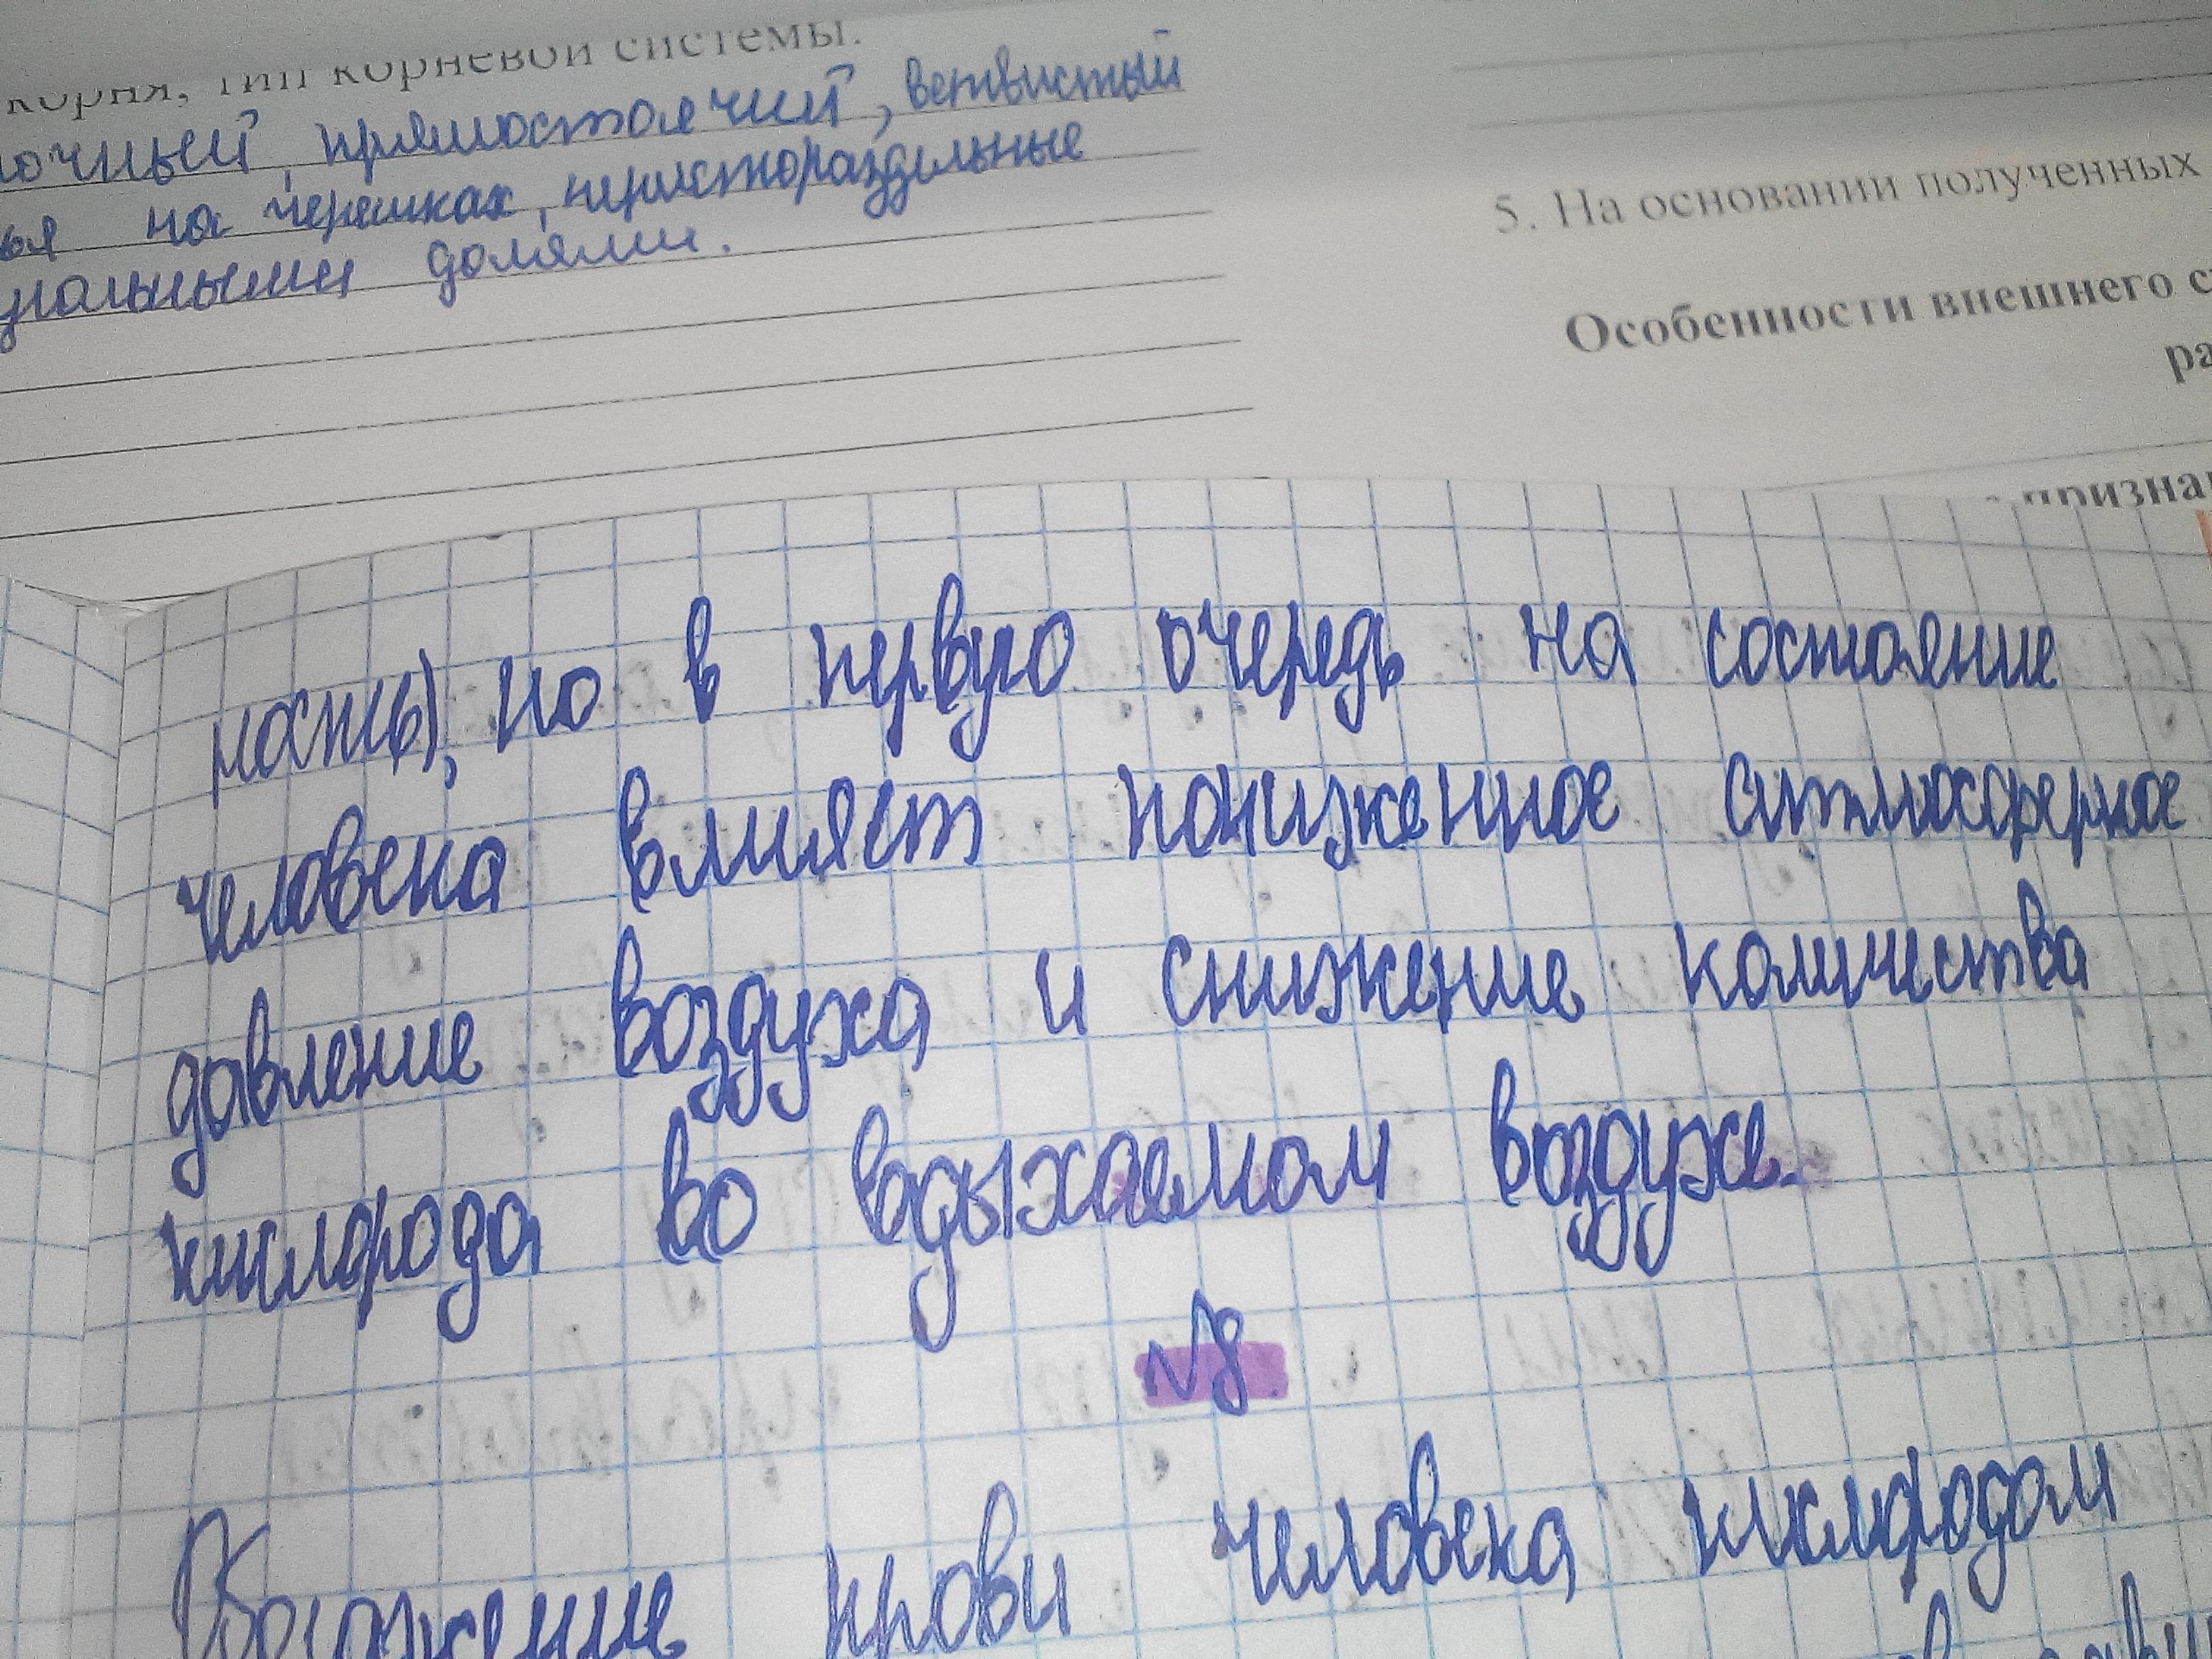 корня, тип корневой системы.
прямостоячий, ветвистый
на черешках, перисторраздельные
долями.
5. На основании полученных
Особенности внешнего
ра
призна
ность), но в первую очередь на состояние
человека влияет пониженное атмосферное
давление воздуха и снижение количества
кислорода во вдыхаемом воздухе.
№8.
крови человека кислородом